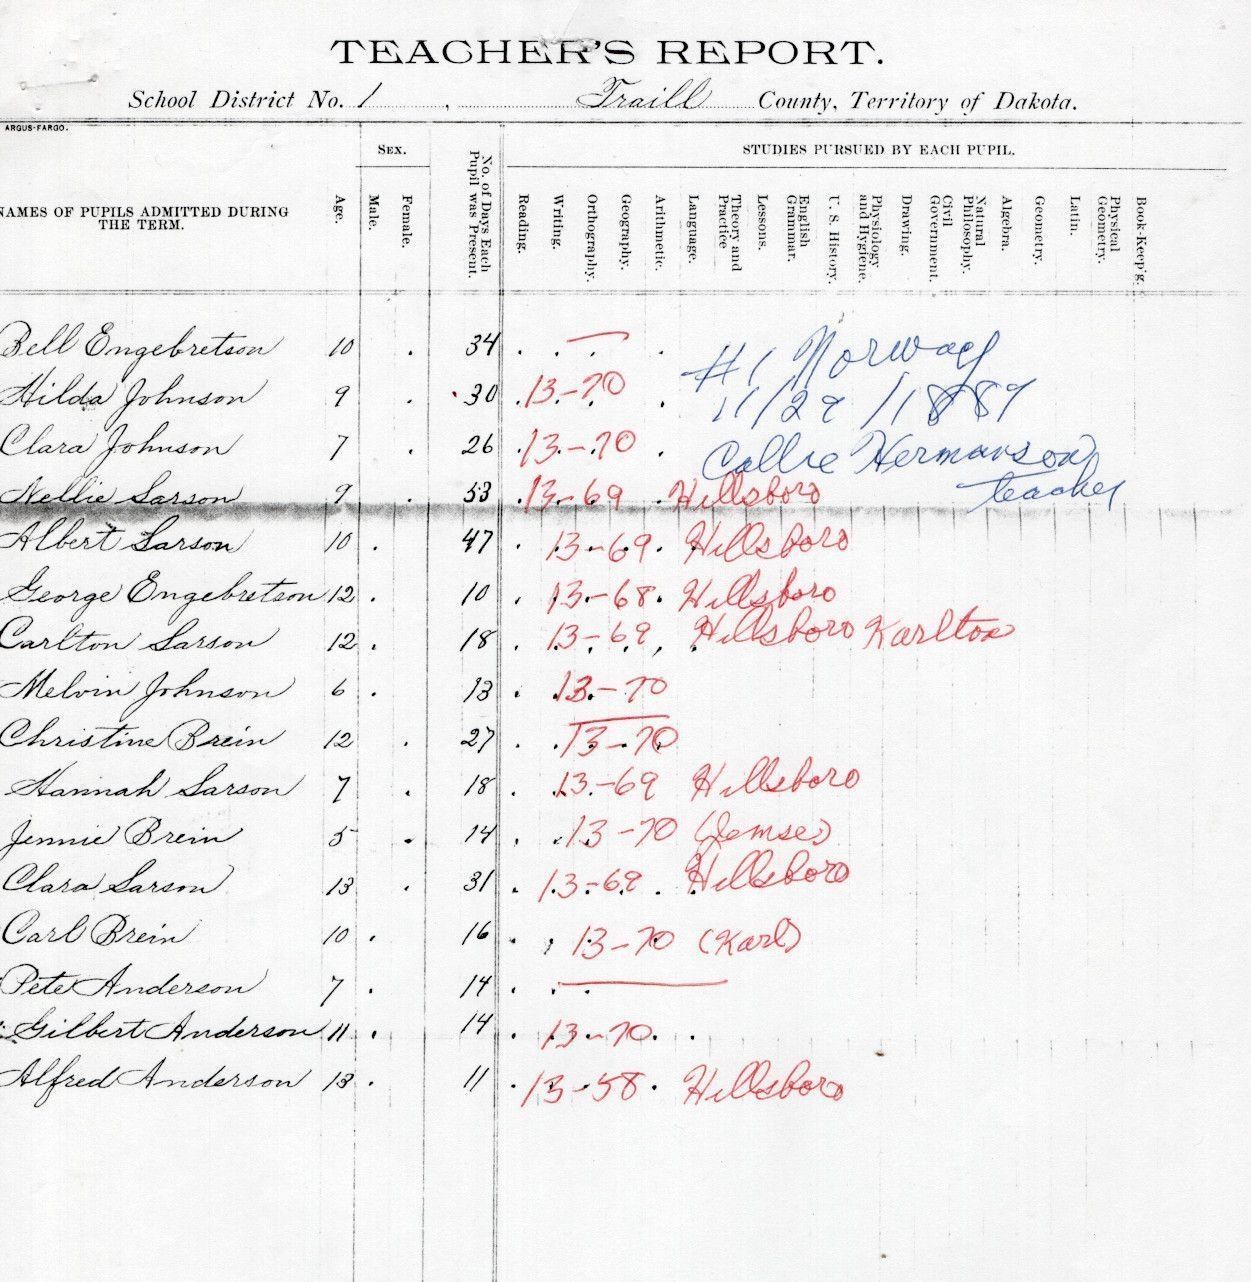 TEACHER'S REPORT.
School District No. 1, Traill County, Territory of Dakota.
ARGUS-FARGO.
NAMES OF PUPILS ADMITTED DURING THE TERM.
Age.
SEX.
Male.
Female.
No. of Days Each Pupil was Present.
STUDIES PURSUED BY EACH PUPIL.
Reading.
Writing.
Orthography.
Geography.
Arithmetic.
Language.
Theory and Practice
Lessons.
English Grammar.
U. S. History.
Physiology and Hygiene.
Drawing.
Civil Government.
Natural Philosophy.
Algebra.
Geometry.
Latin.
Physical Geometry.
Book-Keep'g.
#1 Norway
11/29/1889
Callie Hermanson
teacher
Bell Engebretson 10 . 34 . . . .
Hilda Johnson 9 . 30 13-70
Clara Johnson 7 . 26 13-70
Nellie Larson 9 . 53 13-69 Hillsboro
Albert Larson 10 . 47 13-69 Hillsboro
George Engebretson 12 . 10 13-68 Hillsboro
Carlton Larson 12 . 18 13-69 Hillsboro Karlton
Melvin Johnson 6 . 13 13-70
Christine Brein 12 . 27 13-70
Hannah Larson 7 . 18 13-69 Hillsboro
Jennie Brein 5 . 14 13-70 (Jemse)
Clara Larson 13 . 31 13-69 Hillsboro
Carl Brein 10 . 16 13-70 (Karl)
Pete Anderson 7 . 14 . . .
Gilbert Anderson 11 . 14 13-70
Alfred Anderson 13 . 11 13-58 Hillsboro